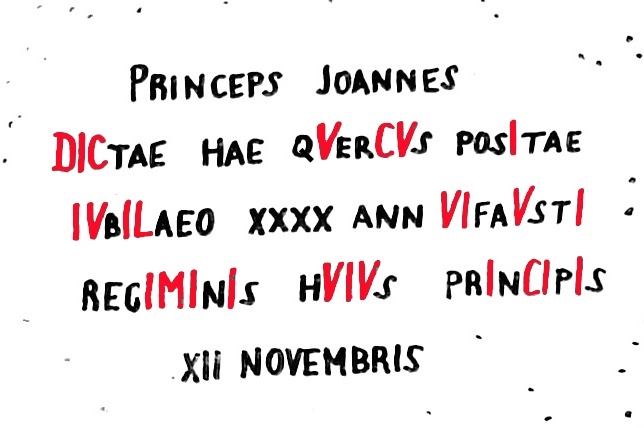 PRINCEPS JOANNES
DICTAE HAE QVERCVS POSITAE
IVBILAEO XXXX ANN VIFAVSTI
REGIMINIS HVIVS PRINCIPIS
XII NOVEMBRIS